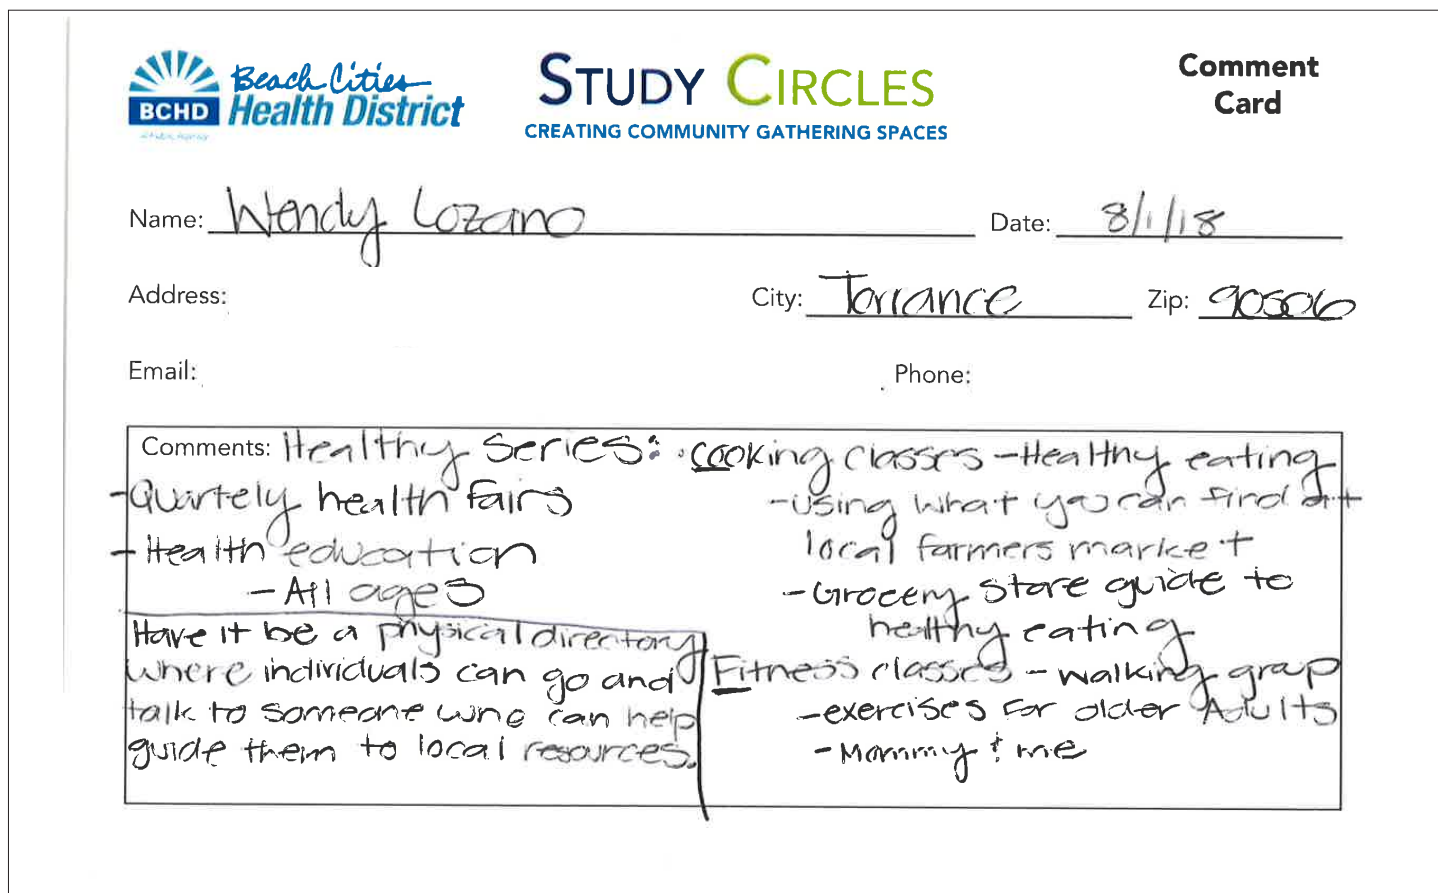 Beach Cities
BCHD Health District
A Public Agency
STUDY CIRCLES
CREATING COMMUNITY GATHERING SPACES
Comment
Card
Name: Wendy Lozano
Date: 8/1/18
Address:
City: Torrance
Zip: 90506
Email:
Phone:
Comments: Healthy Series:
-Quartely health fairs
-Health education
-All ages
Have it be a physical directory
where individuals can go and
talk to someone who can help
guide them to local resources.
·cooking classes -Healthy eating
-using what you can find at
local farmers market
-Grocery store guide to
healthy eating
Fitness classes -walking group
-exercises for older Adults
-Mommy & me